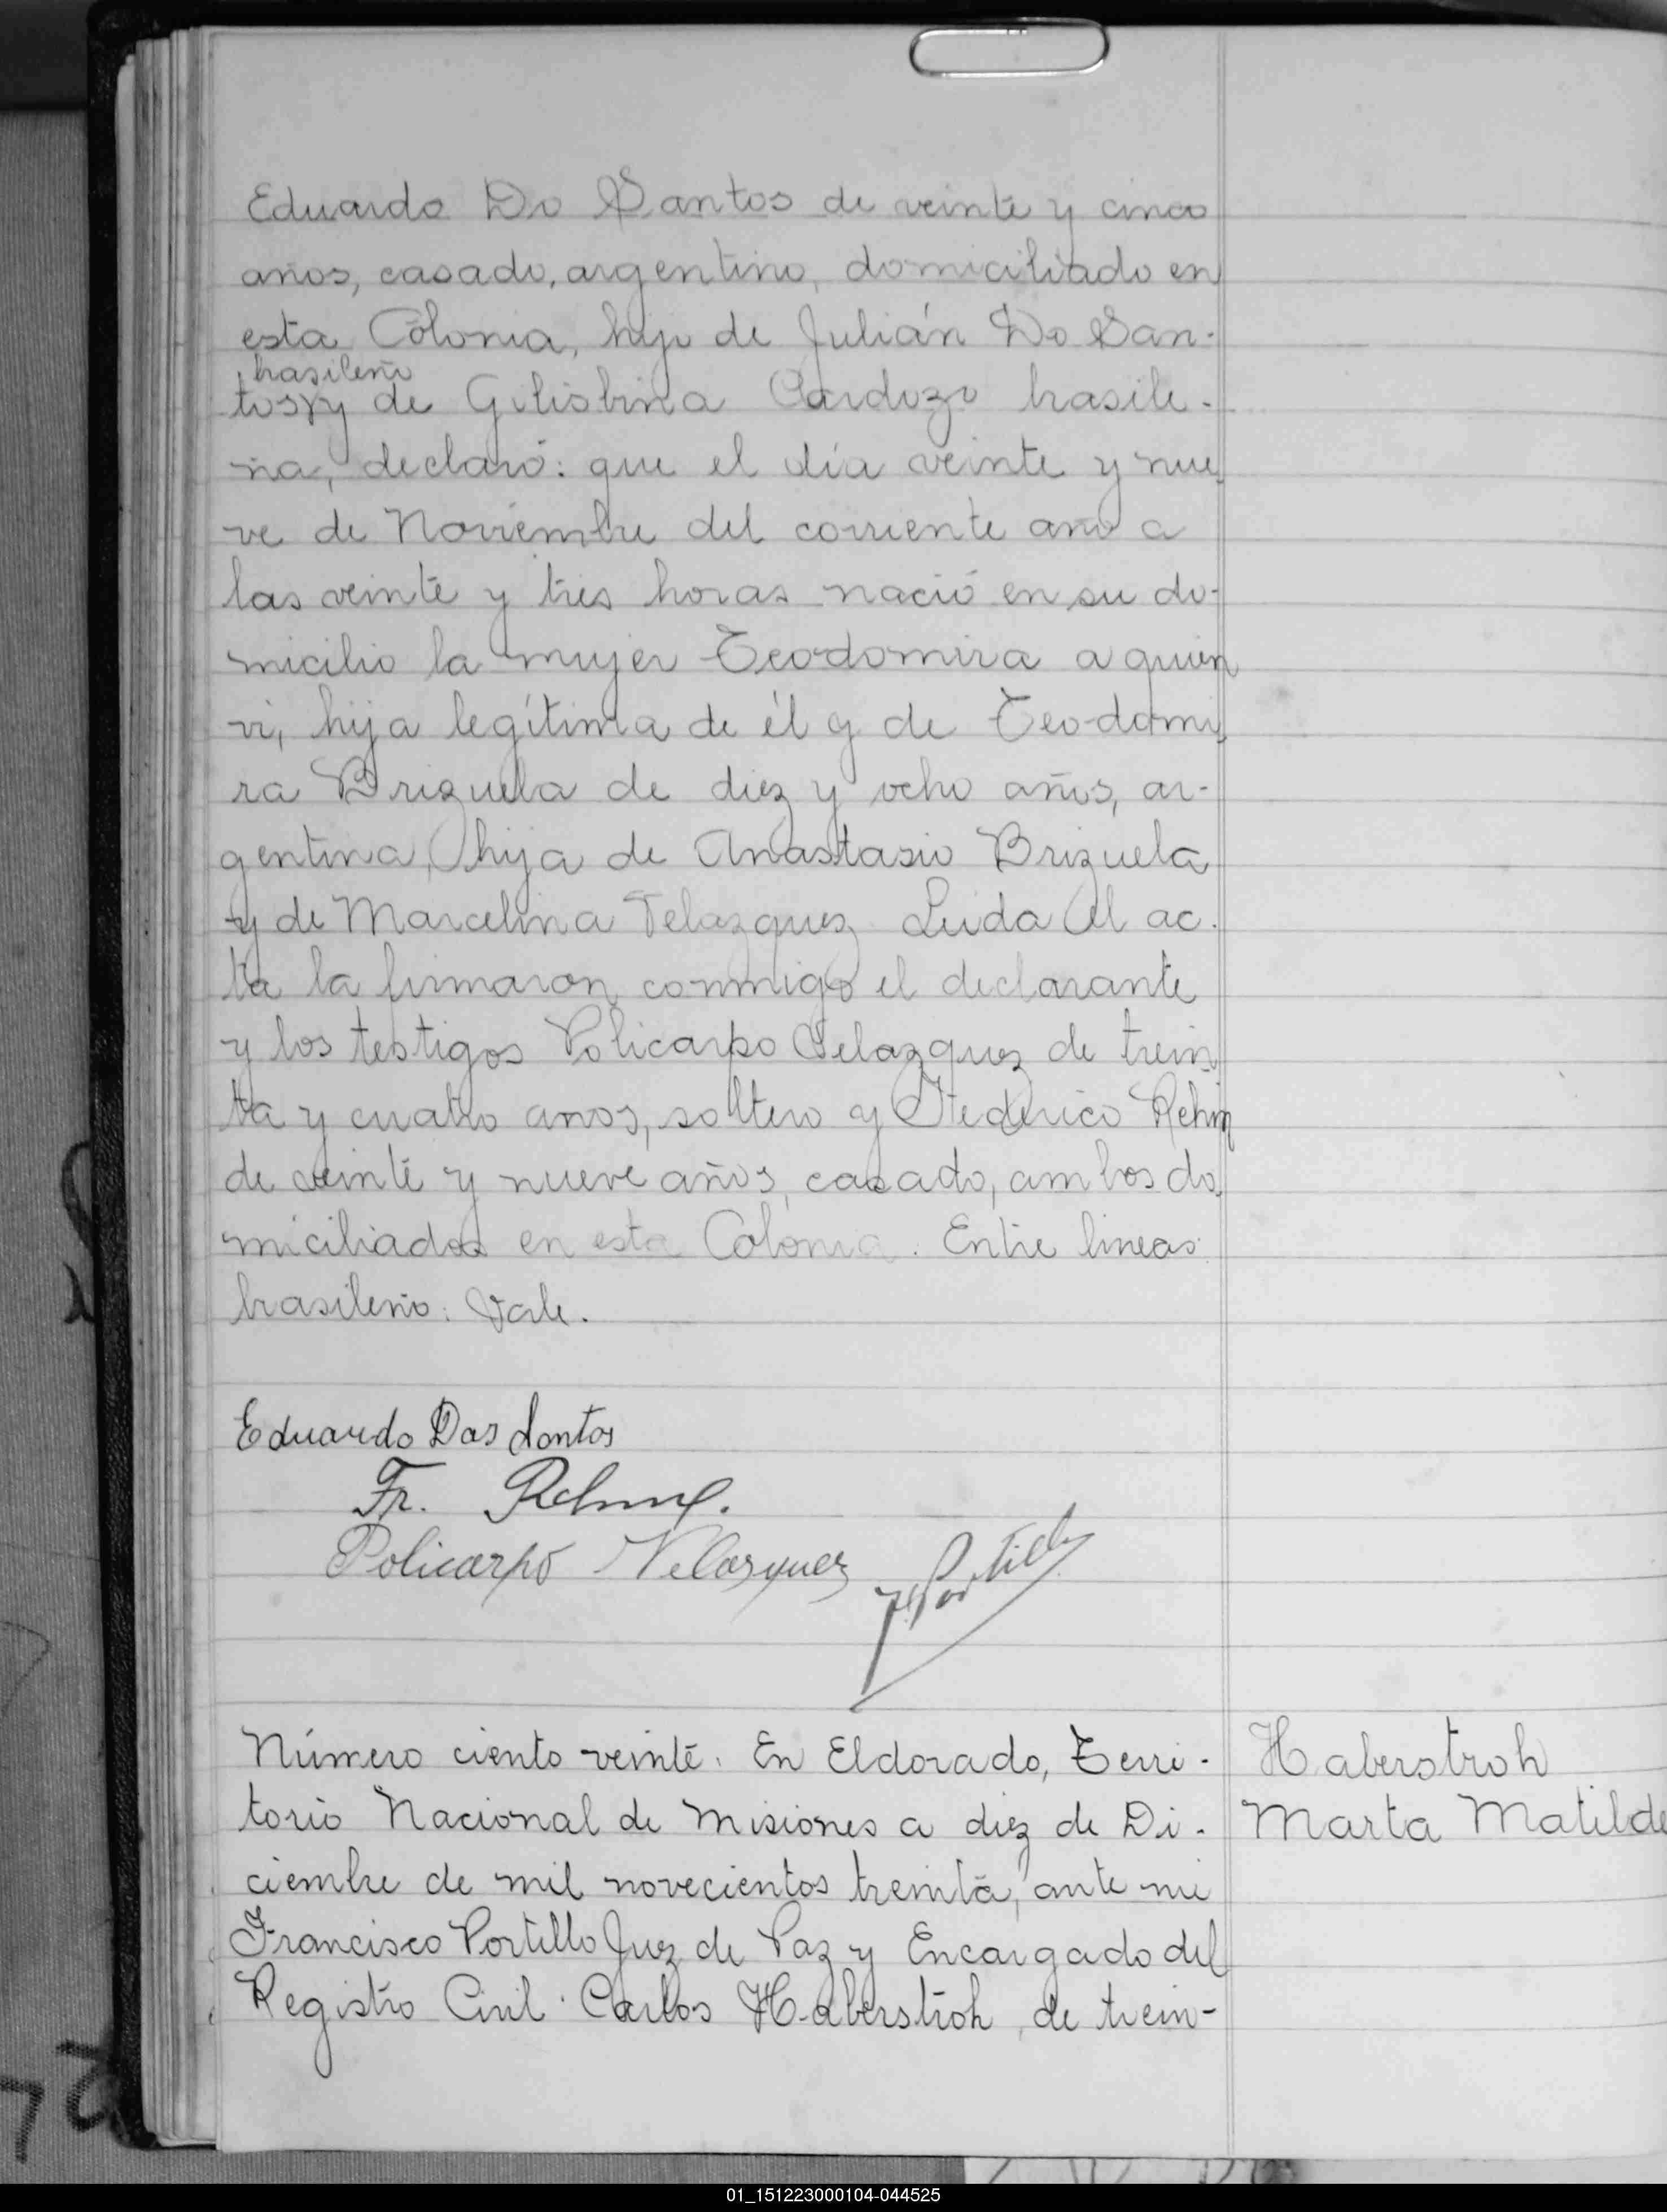 Eduardo Do Santos de veinte y cinco
años, casado, argentino, domiciliado en
esta Colonia, hijo de Julián Do San-
brasileño
tos y de Gilisbina Cardozo brasile-
ña, declaró: que el día veinte y nue
ve de Noviembre del corriente año a
las veinte y tres horas nació en su do-
micilio la mujer Teodomira a quien
vi, hija legítima de él y de Teodomi
ra Brizuela de diez y ocho años, ar-
gentina, hija de Anastasio Brizuela
y de Marcelina Velazquez. Leida el ac-
ta la firmaron conmigo el declarante
y los testigos Policarpo Velazquez de trein
ta y cuatro anos, soltero y Federico Rehm
de veinte y nueve años, casado, ambos do
miciliados en esta Colonia. Entre lineas:
brasileño: Vale.
Eduardo Das Santos
Fr. Rehm
Policarpo Velasquez
Número ciento veinte. En Eldorado, Terri-
torio Nacional de Misiones a diez de Di-
ciembre de mil novecientos treinta, ante mi
Francisco Portillo Juez de Paz y Encargado del
Registro Civil. Carlos Haberstroh, de trein-
Haberstroh
Marta Matilde
01_151223000104-044525